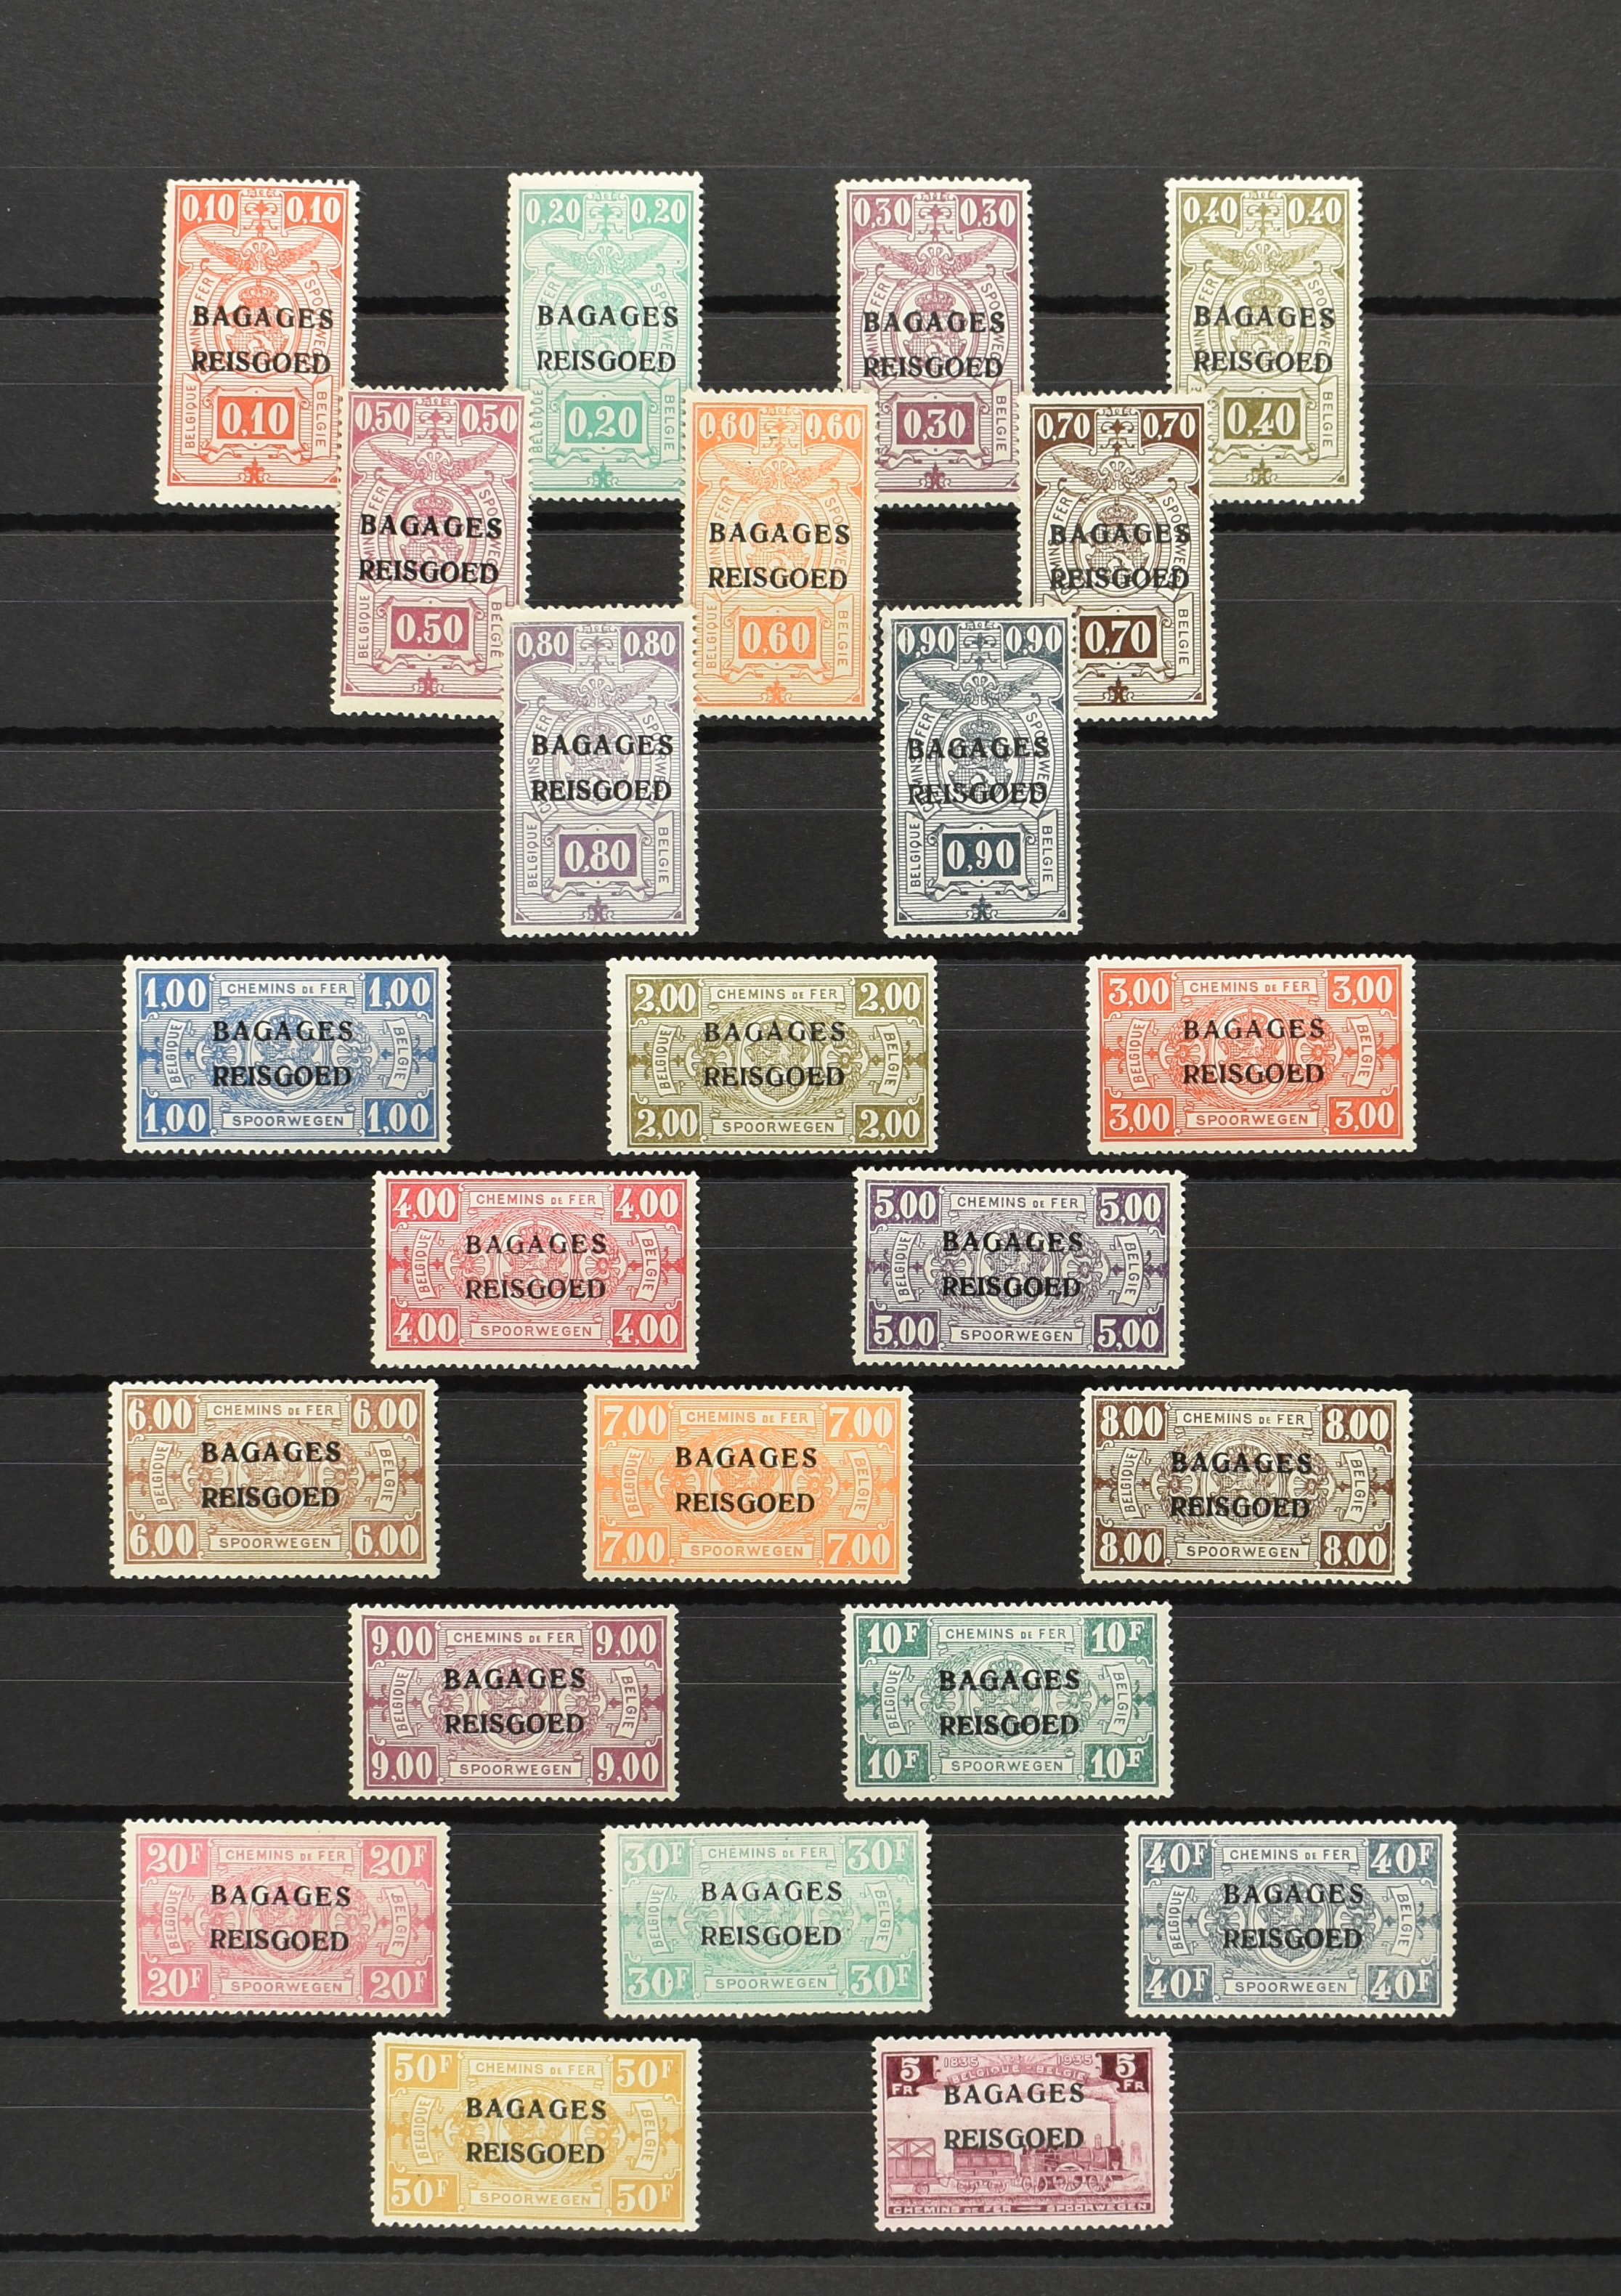 0,10 0,10
CHEMINS FER SPOORWEGEN
BAGAGES
REISGOED
BELGIQUE 0,10 BELGIE
0,20 0,20
SPOORWEGEN
BAGAGES
REISGOED
BELGIQUE 0,20 BELGIE
0,30 0,30
CHEMINS FER SPOORWEGEN
BAGAGES
REISGOED
0,30 BELGIE
0,40 0,40
CHEMINS FER SPOORWEGEN
BAGAGES
REISGOED
0,40 BELGIE
0,50 0,50
CHEMINS FER SPOORWEGEN
BAGAGES
REISGOED
BELGIQUE 0,50 BELGIE
0,60 0,60
CHEMINS FER SPOORWEGEN
BAGAGES
REISGOED
BELGIQUE 0,60 BELGIE
0,70 0,70
CHEMINS FER SPOORWEGEN
BAGAGES
REISGOED
0,70 BELGIE
0,80 0,80
CHEMINS FER SPOORWEGEN
BAGAGES
REISGOED
BELGIQUE 0,80 BELGIE
0,90 0,90
CHEMINS FER SPOORWEGEN
BAGAGES
REISGOED
BELGIQUE 0,90 BELGIE
1,00 CHEMINS DE FER 1,00
BELGIQUE BAGAGES BELGIE
REISGOED
1,00 SPOORWEGEN 1,00
2,00 CHEMINS DE FER 2,00
BELGIQUE BAGAGES BELGIE
REISGOED
2,00 SPOORWEGEN 2,00
3,00 CHEMINS DE FER 3,00
BELGIQUE BAGAGES BELGIE
REISGOED
3,00 SPOORWEGEN 3,00
4,00 CHEMINS DE FER 4,00
BELGIQUE BAGAGES BELGIE
REISGOED
4,00 SPOORWEGEN 4,00
5,00 CHEMINS DE FER 5,00
BELGIQUE BAGAGES BELGIE
REISGOED
5,00 SPOORWEGEN 5,00
6,00 CHEMINS DE FER 6,00
BELGIQUE BAGAGES BELGIE
REISGOED
6,00 SPOORWEGEN 6,00
7,00 CHEMINS DE FER 7,00
BELGIQUE BAGAGES BELGIE
REISGOED
7,00 SPOORWEGEN 7,00
8,00 CHEMINS DE FER 8,00
BELGIQUE BAGAGES BELGIE
REISGOED
8,00 SPOORWEGEN 8,00
9,00 CHEMINS DE FER 9,00
BELGIQUE BAGAGES BELGIE
REISGOED
9,00 SPOORWEGEN 9,00
10F CHEMINS DE FER 10F
BELGIQUE BAGAGES BELGIE
REISGOED
10F SPOORWEGEN 10F
20F CHEMINS DE FER 20F
BELGIQUE BAGAGES BELGIE
REISGOED
20F SPOORWEGEN 20F
30F CHEMINS DE FER 30F
BELGIQUE BAGAGES BELGIE
REISGOED
30F SPOORWEGEN 30F
40F CHEMINS DE FER 40F
BELGIQUE BAGAGES BELGIE
REISGOED
40F SPOORWEGEN 40F
50F CHEMINS DE FER 50F
BELGIQUE BAGAGES BELGIE
REISGOED
50F SPOORWEGEN 50F
5 FR 1835 1935 5 FR
BELGIQUE - BELGIE
BAGAGES
REISGOED
CHEMINS DE FER — SPOORWEGEN